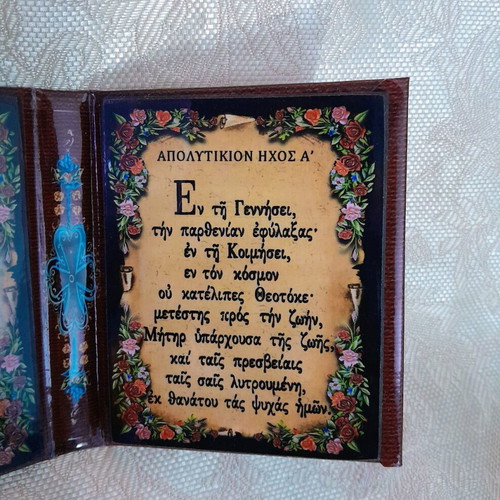 ΑΠΟΛΥΤΙΚΙΟΝ ΗΧΟΣ Α’
Εν τῆ Γεννήσει,
τήν παρθενίαν ἐφύλαξας·
ἐν τῆ Κοιμήσει,
εν τόν κόσμον
οὐ κατέλιπες Θεοτόκε·
μετέστης πρός τήν ζωήν,
Μήτηρ ὑπάρχουσα τῆς ζωῆς,
καί ταῖς πρεσβείαις
ταῖς σαῖς λυτρουμένη,
ἐκ θανάτου τάς ψυχάς ἡμῶν.